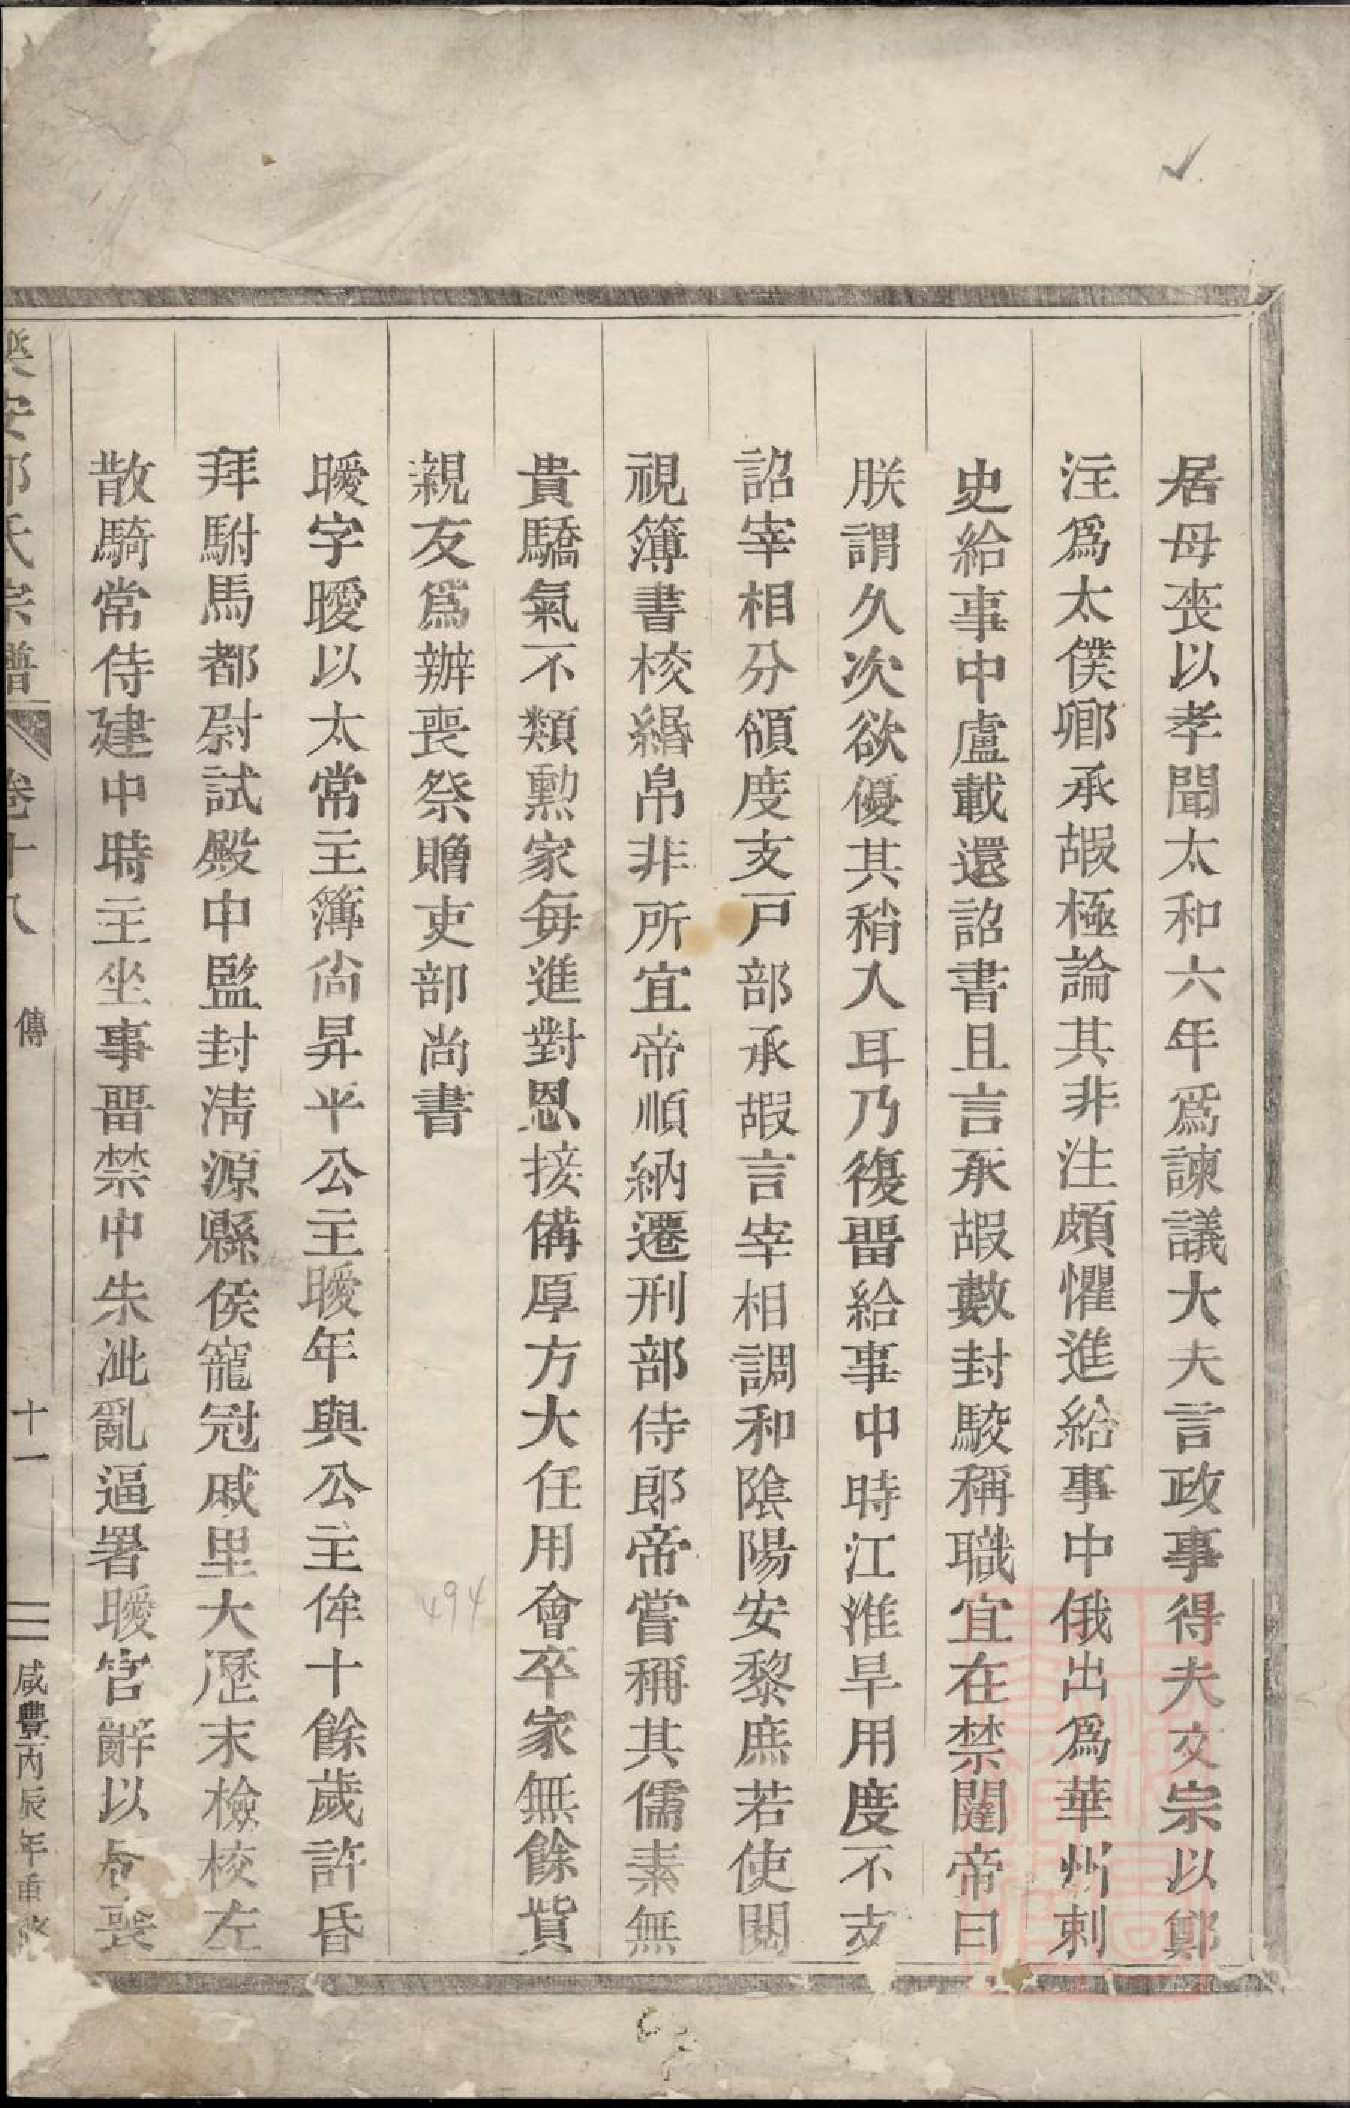 居母喪以孝聞太和六年爲諫議大夫言政事得失文宗以鄭
注爲太僕卿承嘏極論其非注頗懼進給事中俄出爲華州刺
史給事中盧載還詔書且言承嘏數封駮稱職宜在禁闥帝曰
朕謂久次欲優其稍入耳乃復畱給事中時江淮旱用度不支
詔宰相分領度支戸部承嘏言宰相調和陰陽安黎庶若使閱
視簿書校緡帛非所宜帝順納遷刑部侍郎帝嘗稱其儒素無
貴驕氣不類勲家每進對恩接備厚方大任用會卒家無餘貲
親友爲辦喪祭贈吏部尚書
曖字曖以太常主簿尚昇平公主曖年與公主侔十餘歲許昏
拜駙馬都尉試殿中監封淸源縣侯寵冠戚里大歷末檢校左
散騎常侍建中時主坐事畱禁中朱泚亂逼署曖官辭以居喪
樂安郭氏宗譜 卷十八 傳 十一 咸豐丙辰年重修
494